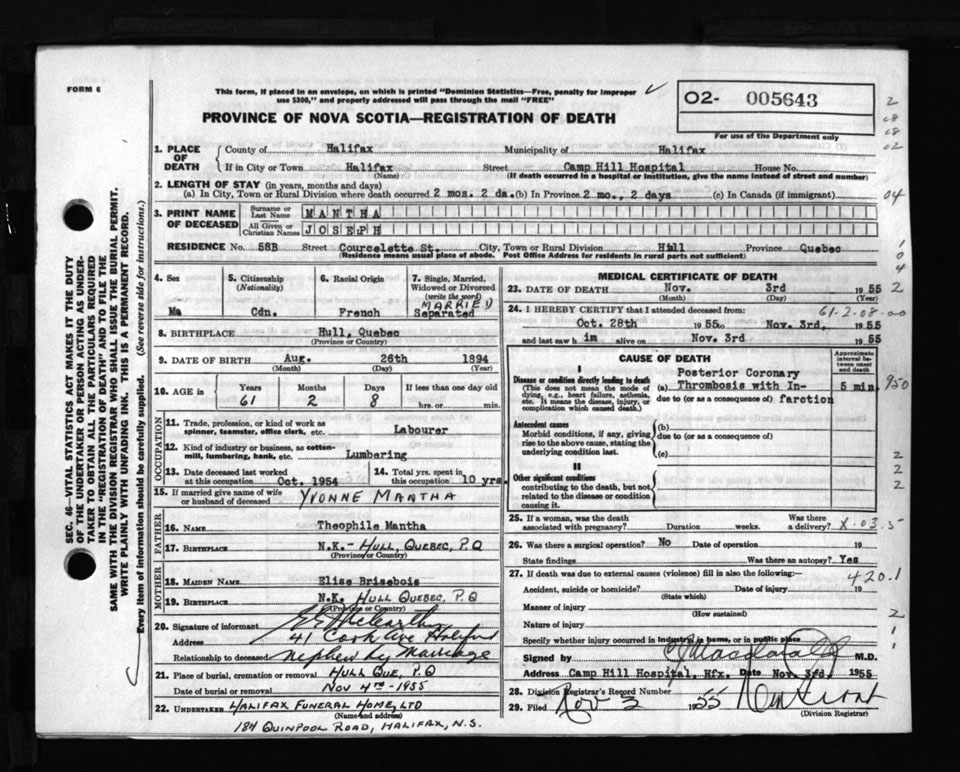 FORM 6
This form, if placed in an envelope, on which is printed "Dominion Statistics—Free, penalty for improper
use $300," and properly addressed will pass through the mail "FREE"
O2- 005643
For use of the Department only
PROVINCE OF NOVA SCOTIA—REGISTRATION OF DEATH
1. PLACE OF DEATH County of Halifax Municipality of Halifax
If in City or Town Halifax Street Camp Hill Hospital House No.
(Name) (If death occurred in a hospital or institution, give the name instead of street and number)
2. LENGTH OF STAY (in years, months and days)
(a) In City, Town or Rural Division where death occurred 2 mos. 2 da. (b) In Province 2 mo., 2 days (c) In Canada (if immigrant)
3. PRINT NAME OF DECEASED Surname or Last Name MANTHA
All Given or Christian Names JOSEPH
RESIDENCE No. 58B Street Courcelette St. City, Town or Rural Division Hill Province Quebec
(Residence means usual place of abode. Post Office Address for residents in rural parts not sufficient)
4. Sex Ma
5. Citizenship (Nationality) Cdn.
6. Racial Origin French
7. Single, Married, Widowed or Divorced (write the word) MARRIED Separated
8. BIRTHPLACE Hull, Quebec
(Province or Country)
9. DATE OF BIRTH Aug. 26th 1894
(Month) (Day) (Year)
10. AGE in Years 61 Months 2 Days 8 If less than one day old hrs. or min.
OCCUPATION
11. Trade, profession, or kind of work as spinner, teamster, office clerk, etc. Labourer
12. Kind of industry or business, as cotton-mill, lumbering, bank, etc. Lumbering
13. Date deceased last worked at this occupation Oct. 1954
14. Total yrs. spent in this occupation 10 yrs.
15. If married give name of wife or husband of deceased YVONNE MANTHA
FATHER
16. NAME Theophile Mantha
17. BIRTHPLACE N.K.- HULL QUEBEC, P.Q
(Province or Country)
MOTHER
18. MAIDEN NAME Elise Brisebois
19. BIRTHPLACE N.K. HULL QUEBEC, P.Q
(Province or Country)
20. Signature of informant
Address 41 Cook Ave Halifax
Relationship to deceased Nephew by Marriage
21. Place of burial, cremation or removal HULL QUE, P.Q
Date of burial or removal NOV 4TH-1955
22. UNDERTAKER HALIFAX FUNERAL HOME, LTD
(Name and address)
184 QUINPOOL ROAD, HALIFAX, N.S.
MEDICAL CERTIFICATE OF DEATH
23. DATE OF DEATH Nov. 3rd 1955
(Month) (Day) (Year)
24. I HEREBY CERTIFY that I attended deceased from: 61-2-08-00
Oct. 28th 1955 to Nov. 3rd, 1955
and last saw h im alive on Nov. 3rd 1955
CAUSE OF DEATH
Approximate interval between onset and death
I
Disease or condition directly leading to death
(This does not mean the mode of dying, e.g., heart failure, asthenia, etc. It means the disease, injury, or complication which caused death.)
Posterior Coronary
(a) Thrombosis with In- 5 min.
due to (or as a consequence of) farction
Antecedent causes
Morbid conditions, if any, giving rise to the above cause, stating the underlying condition last.
(b)
due to (or as a consequence of)
(c)
II
Other significant conditions
contributing to the death, but not related to the disease or condition causing it.
25. If a woman, was the death associated with pregnancy? Duration weeks. Was there a delivery? X-03.5
26. Was there a surgical operation? No Date of operation 19
State findings Was there an autopsy? Yes
27. If death was due to external causes (violence) fill in also the following:—
420.1
Accident, suicide or homicide? Date of injury 19
(State which)
Manner of injury
(How sustained)
Nature of injury
Specify whether injury occurred in industry, in home, or in public place
Signed by M.D.
Address Camp Hill Hospital, Hfx. Date Nov. 3rd. 1955
28. Division Registrar's Record Number
29. Filed Nov 3 1955
(Division Registrar)
SEC. 46—VITAL STATISTICS ACT MAKES IT THE DUTY
OF THE UNDERTAKER OR PERSON ACTING AS UNDER-
TAKER TO OBTAIN ALL THE PARTICULARS REQUIRED
IN THE "REGISTRATION OF DEATH" AND TO FILE THE
SAME WITH THE DIVISION REGISTRAR WHO SHALL ISSUE THE BURIAL PERMIT.
WRITE PLAINLY WITH UNFADING INK. THIS IS A PERMANENT RECORD.
Every item of information should be carefully supplied. (See reverse side for instructions.)
2
08
08
02
04
1
0
4
2
950
2
2
2
2
1
1